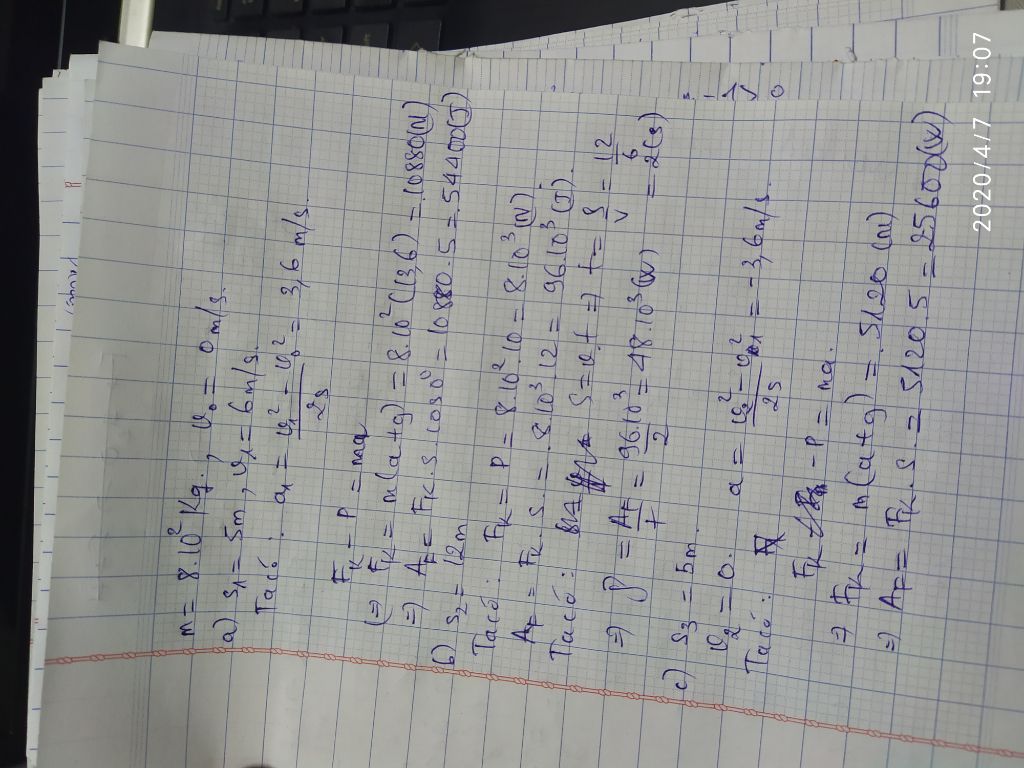 m = 8.10² Kg ; v₀ = 0 m/s.
a) s₁ = 5m , v₁ = 6 m/s.
Ta có : a₁ = (v₁² - v₀²)/2s = 3,6 m/s.
Fk - P = ma
(=) Fk = m(a+g) = 8.10²(13,6) = 10880(N)
=> AF = Fk.s.cos0° = 10880.5 = 54400(J)
b) s₂ = 12m
Ta có : Fk = P = 8.10².10 = 8.10³ (N)
AF = Fk.s = 8.10³.12 = 96.10³ (J).
Ta có : S = v.t => t = S/v = 12/6
= 2(s)
=> P = AF/t = 96.10³/2 = 48.10³ (W)
c) s₃ = 5m.
v₂ = 0.
Ta có : a = (v₂² - v₁²)/2s = -3,6 m/s.
Fk - P = ma.
=> Fk = m(a+g) = 5120 (N)
=> AF = Fk.s = 5120.5 = 25600(V)
2020/4/7 19:07